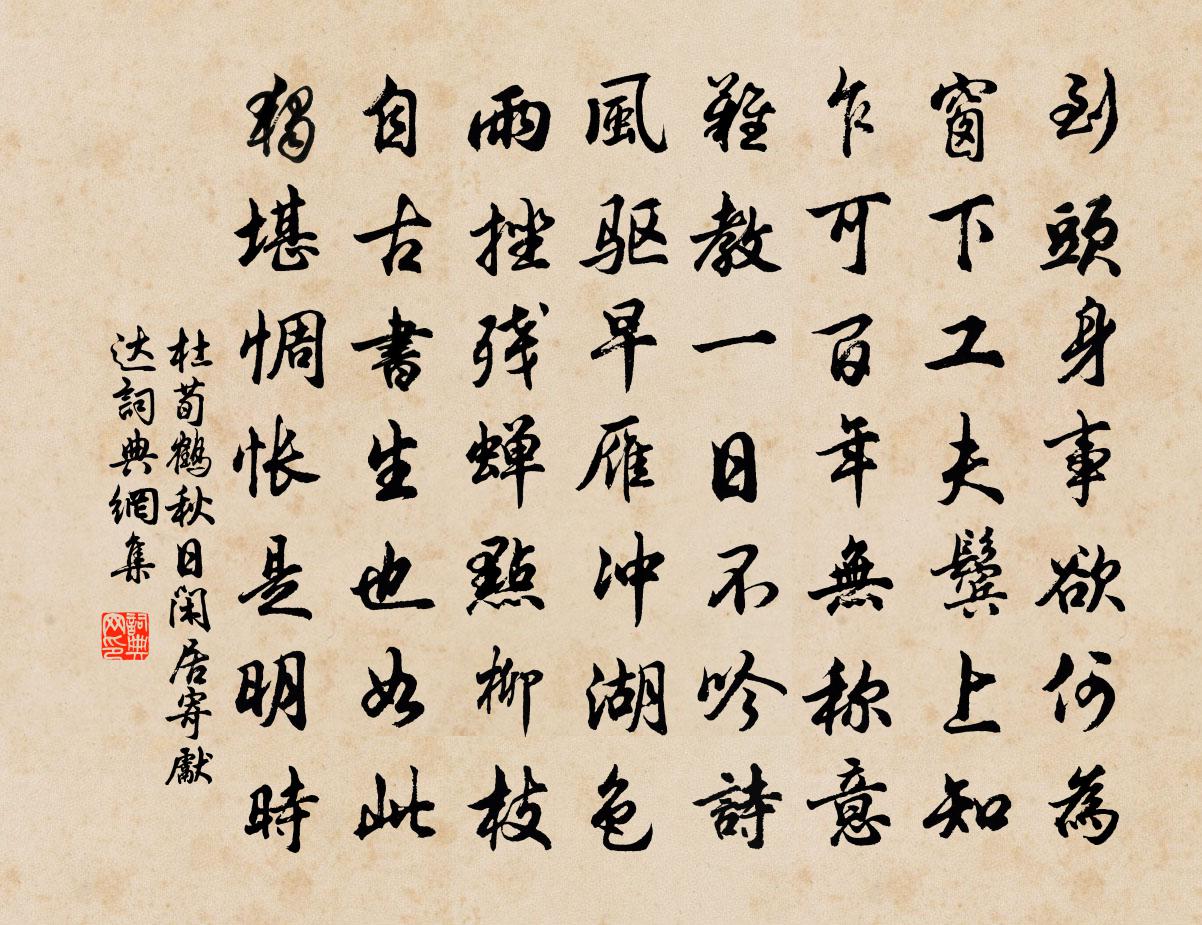 到頭身事欲何為
窗下工夫鬓上知
乍可百年無称意
難教一日不吟詩
風驱早雁冲湖色
雨挫残蝉點柳枝
自古書生也如此
獨堪惆怅是明時
杜荀鶴秋日闲居寄獻
达詞典網集
詞典网印